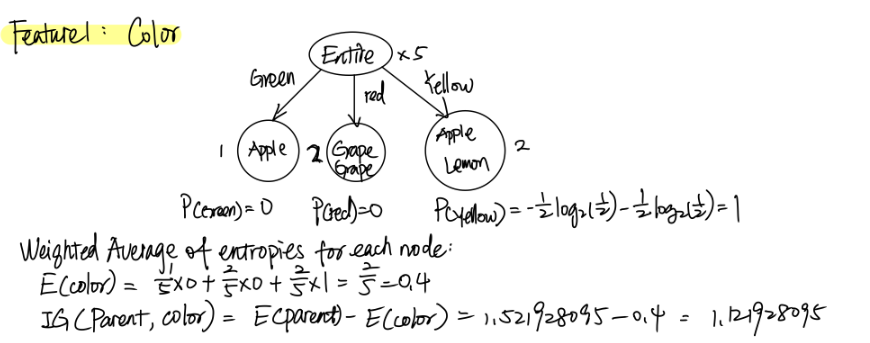 Feature1: Color
Entire ×5
Green
red
Yellow
1 Apple
2 Grape
Grape
Apple
Lemon 2
P(Green)=0 P(red)=0 P(Yellow) = -1/2 log₂(1/2) - 1/2 log₂(1/2) = 1
Weighted Average of entropies for each node:
E(color) = 1/5×0 + 2/5×0 + 2/5×1 = 2/5 = 0.4
IG(Parent, color) = E(parent) - E(color) = 1.521928095 - 0.4 = 1.121928095